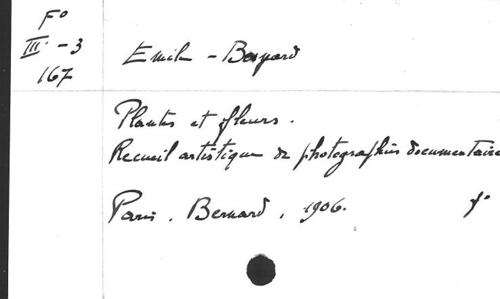 Fº
III - 3
167
Emile - Bayard
Plantes et fleurs.
Recueil artistique de photographies documentaire
Paris. Bernard, 1906. fº